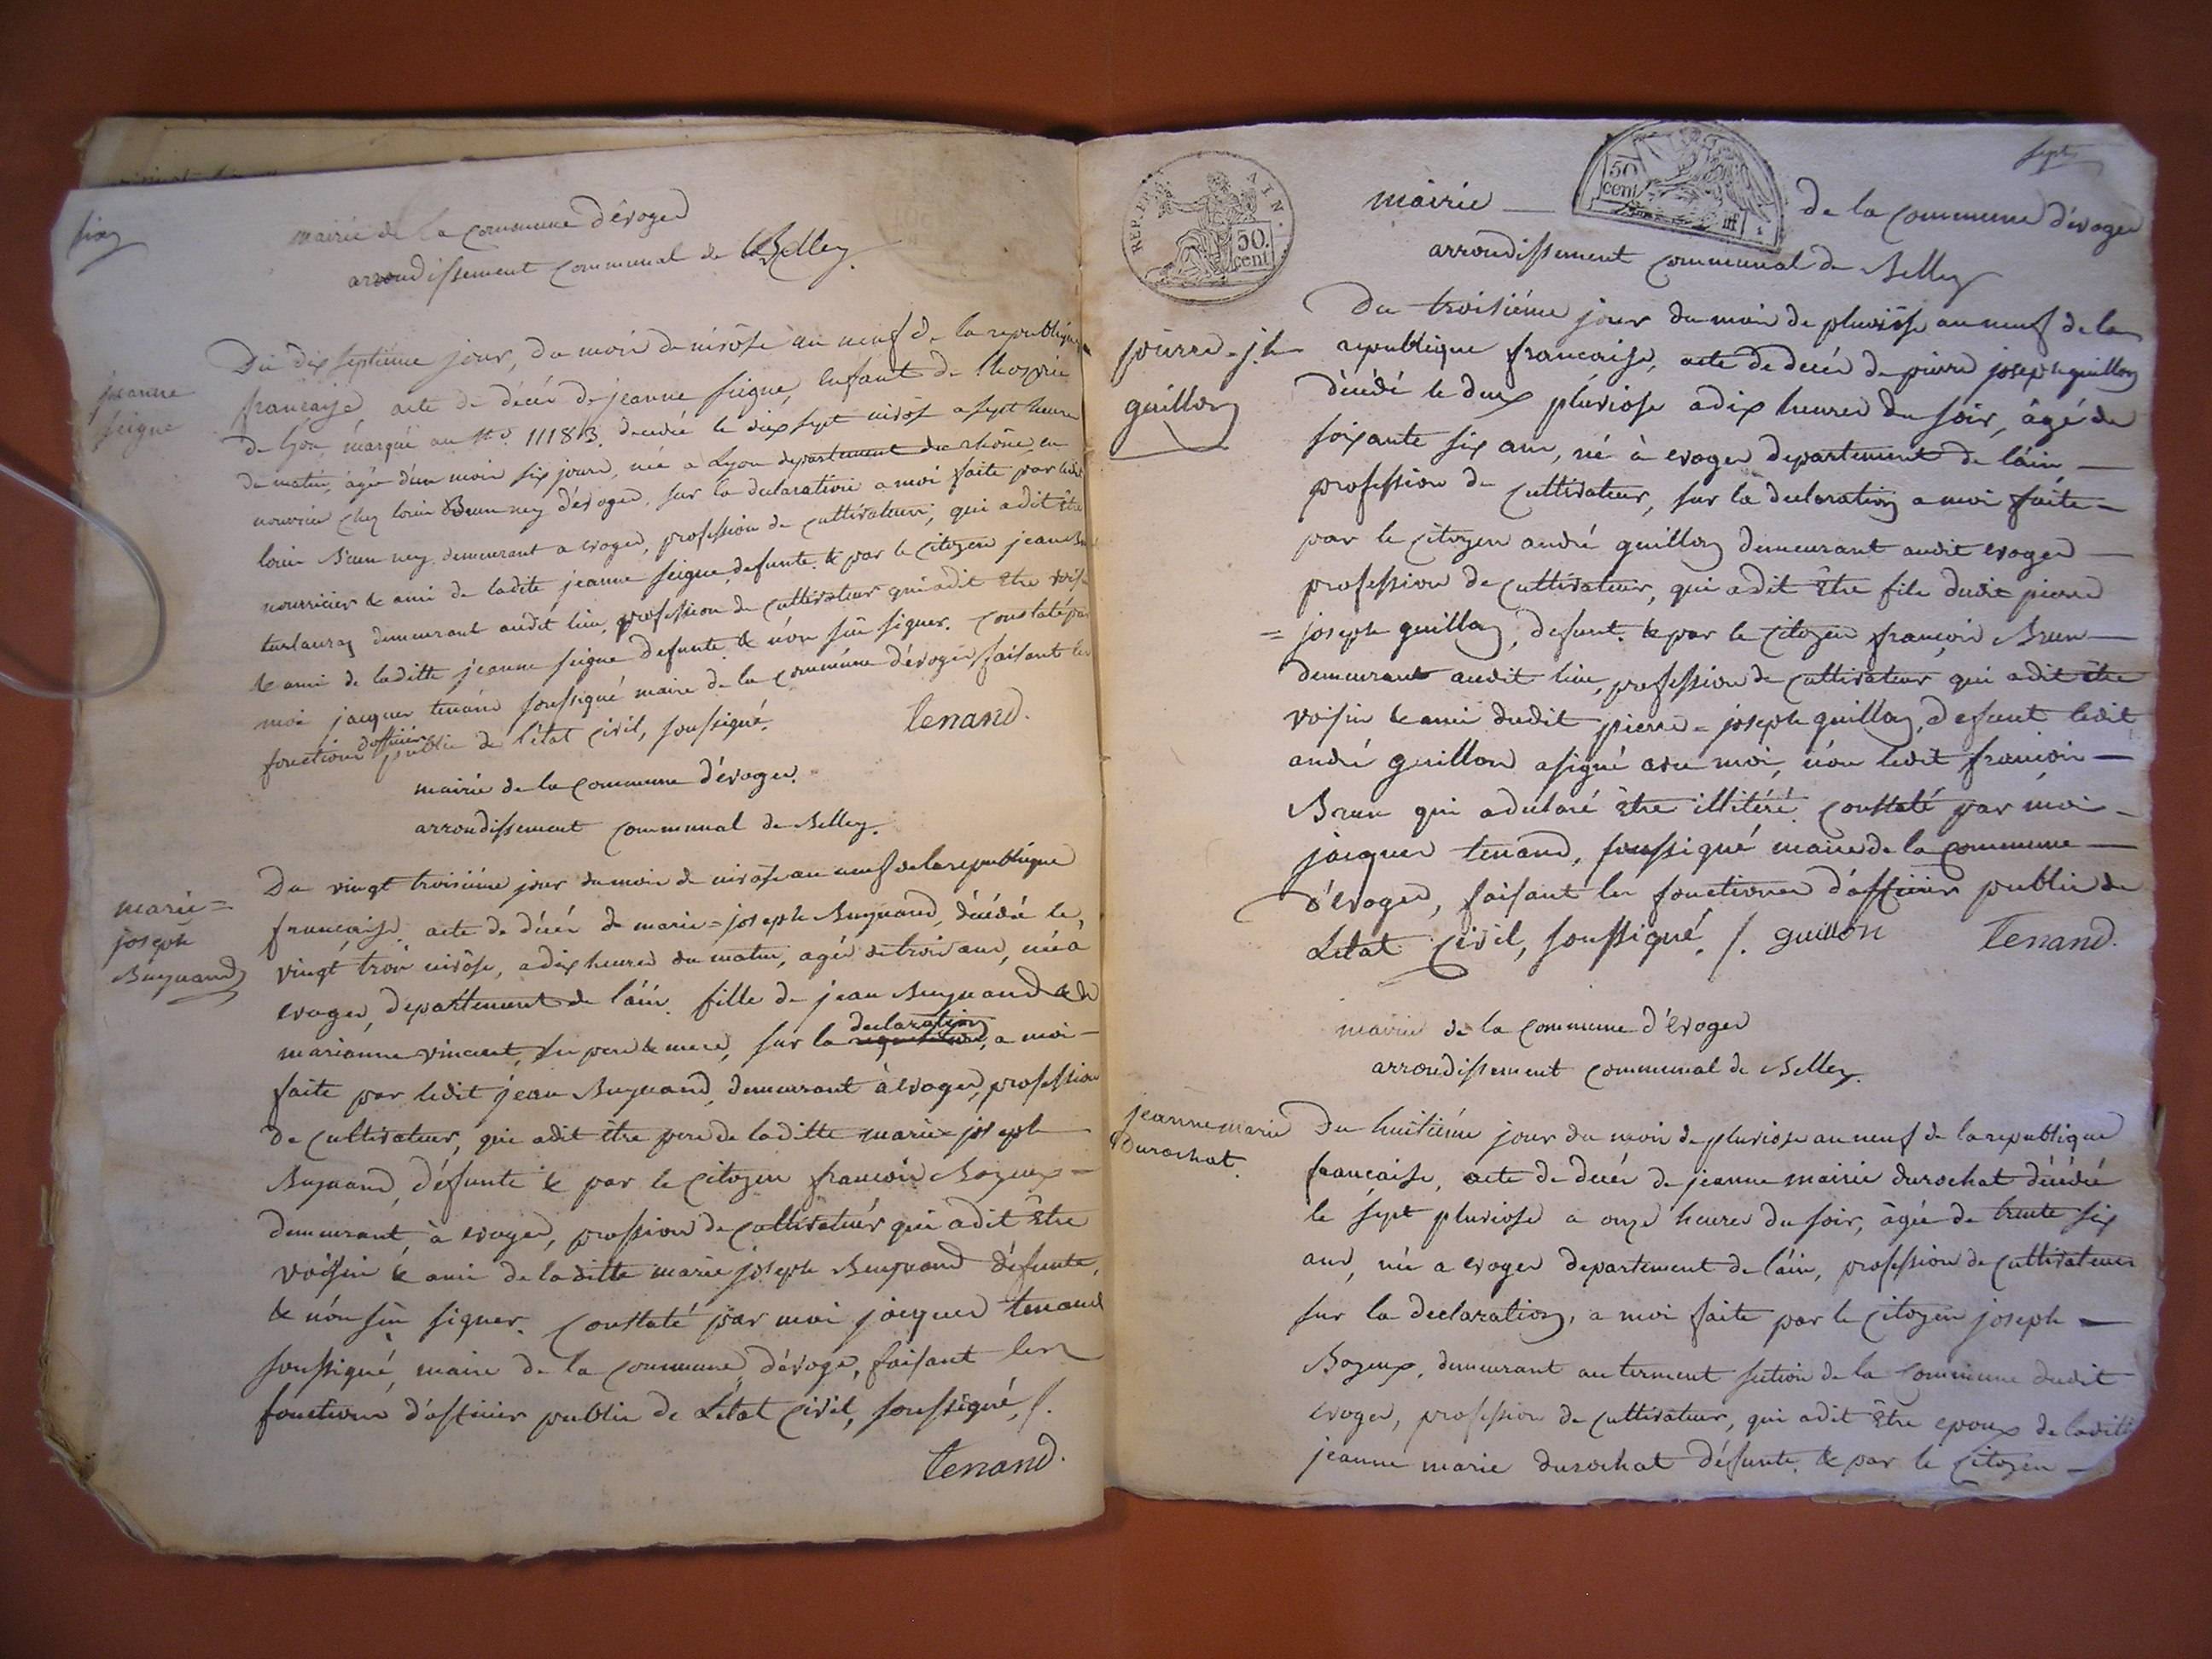 six
mairie de la commune d'évoges
arrondissement communal de Belley.
jeanne
seigne
Du dix septième jour, du mois de nivôse an neuf de la republique
francaise acte de décés de jeanne seigne, enfant de l'hospice
de lyon, marqué au N.o 11183. decedée le dix sept nivôse a sept heures
du matin, âgée d'un mois six jours, née a Lyon departement du rhône, en
nourrice chez louis Brun ney d'évoges, sur la declaration a moi faite par ledit
louis Brun ney demeurant a evoges, profession de cultivateur, qui a dit être
nourricier & ami de ladite jeanne seigne, defunte. & par le citoyen jean
demeurant audit lieu, profession de cultivateur qui a dit être voisin
& ami de laditte jeanne seigne defunte & n'on sûs signer. constaté par
moi jacques tenand soussigné maire de la commune d'évoges faisant les
fonctions d'officier public de l'état civil, soussigné.
tenand.
mairie de la commune d'évoges.
arrondissement communal de Belley.
marie=
joseph
Buynand
Du vingt troisième jour du mois de nivôse an neuf de la republique
francaise. acte de décés de marie=joseph Buynand, décédée le,
vingt trois nivôse, a dix heures du matin, agée de trois ans, née à
evoges, departement de l'ain. fille de jean Buynand & de
marianne vincent, ses pere & mere, sur la declaration, a moi -
faite par ledit jean Buynand, demeurant à evoges, profession
de cultivateur, qui a dit être pere de laditte marie=joseph
Buynand, défunte & par le citoyen francois Bozeux =
demeurant, à evoges, prossion de cultivateur qui a dit être
voisin & ami de laditte marie joseph Buynand défunte,
& n'on sûs signer. constaté par moi jacques tenand
soussigné, maire de la commune d'évoges, faisant les
fonctions d'officier public de L'état civil, soussigné, /.
tenand.
sept
REP. FRA
50.
cent
50
cent
mairie — de la commune d'evoges
arrondissement communal de Belley
pierre=j.h
guillon
Du troisiéme jour du mois de pluviôse an neuf de la
republique francaise, acte de decés de pierre joseph guillon
décédé le deux pluviose a dix heures du soir, âgé de
soixante six ans, né à evoges departement de l'ain —
profession de cultivateur, sur la declaration a moi faite =
par le citoyen andré guillon demeurant audit evoges —
profession de cultivateur, qui a dit être fils dudit pierre
= joseph guillon, defunt. & par le citoyen francois Brun —
demeurant audit lieu, profession de cultivateur qui a dit être
voisin & ami dudit pierre=joseph guillon, defunt ledit
andré guillon a signé avec moi, n'on ledit francois —
Brun qui a declaré être illitéré. constaté par moi -
jacques tenand, soussigné maire de la commune —
d'evoges, faisant les fonctions d'officier public de
L'etat civil, soussigné. /. guillon tenand.
mairie de la commune d'evoges
arrondissement communal de Belley.
jeanne marie
Durochat.
Du huitiéme jour du mois de pluviose an neuf de la republique
francaise, acte de decés de jeanne mairie durochat décédée
le sept pluviose a onze heures du soir, âgée de trente six
ans, née a evoges departement de l'ain, profession de cultivateur
sur la declaration, a moi faite par le citoyen joseph —
Bozeux, demeurant au terment section de la commune dudit
evoges, profession de cultivateur, qui a dit être epoux de laditte
jeanne marie durochat défunte. & par le citoyen —